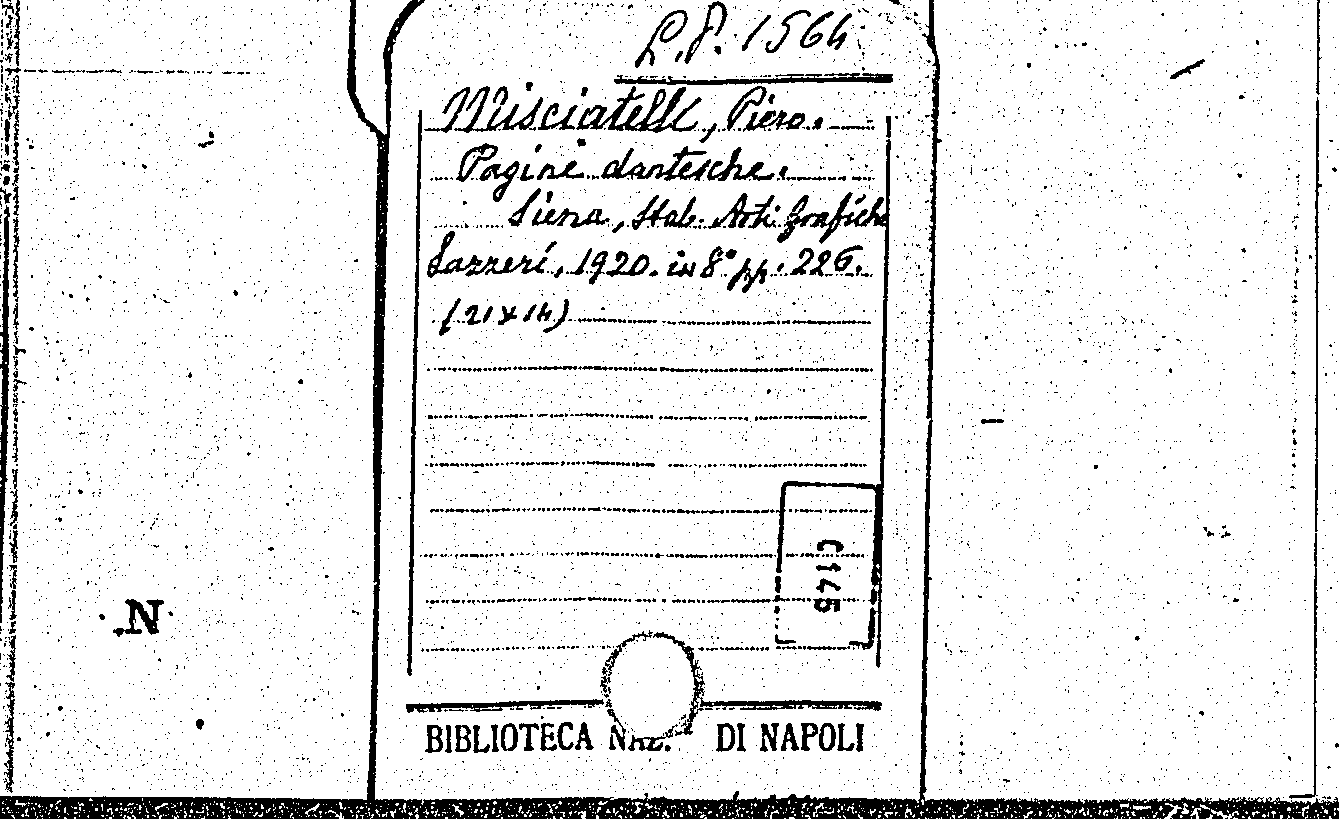 L.P. 1564
Misciatelli, Piero.
Pagine dantesche.
Siena, Stab. Arti Grafiche
Lazzeri, 1920. in 8° pp. 226.
(21x14)
C145
N
BIBLIOTECA NAZ. DI NAPOLI